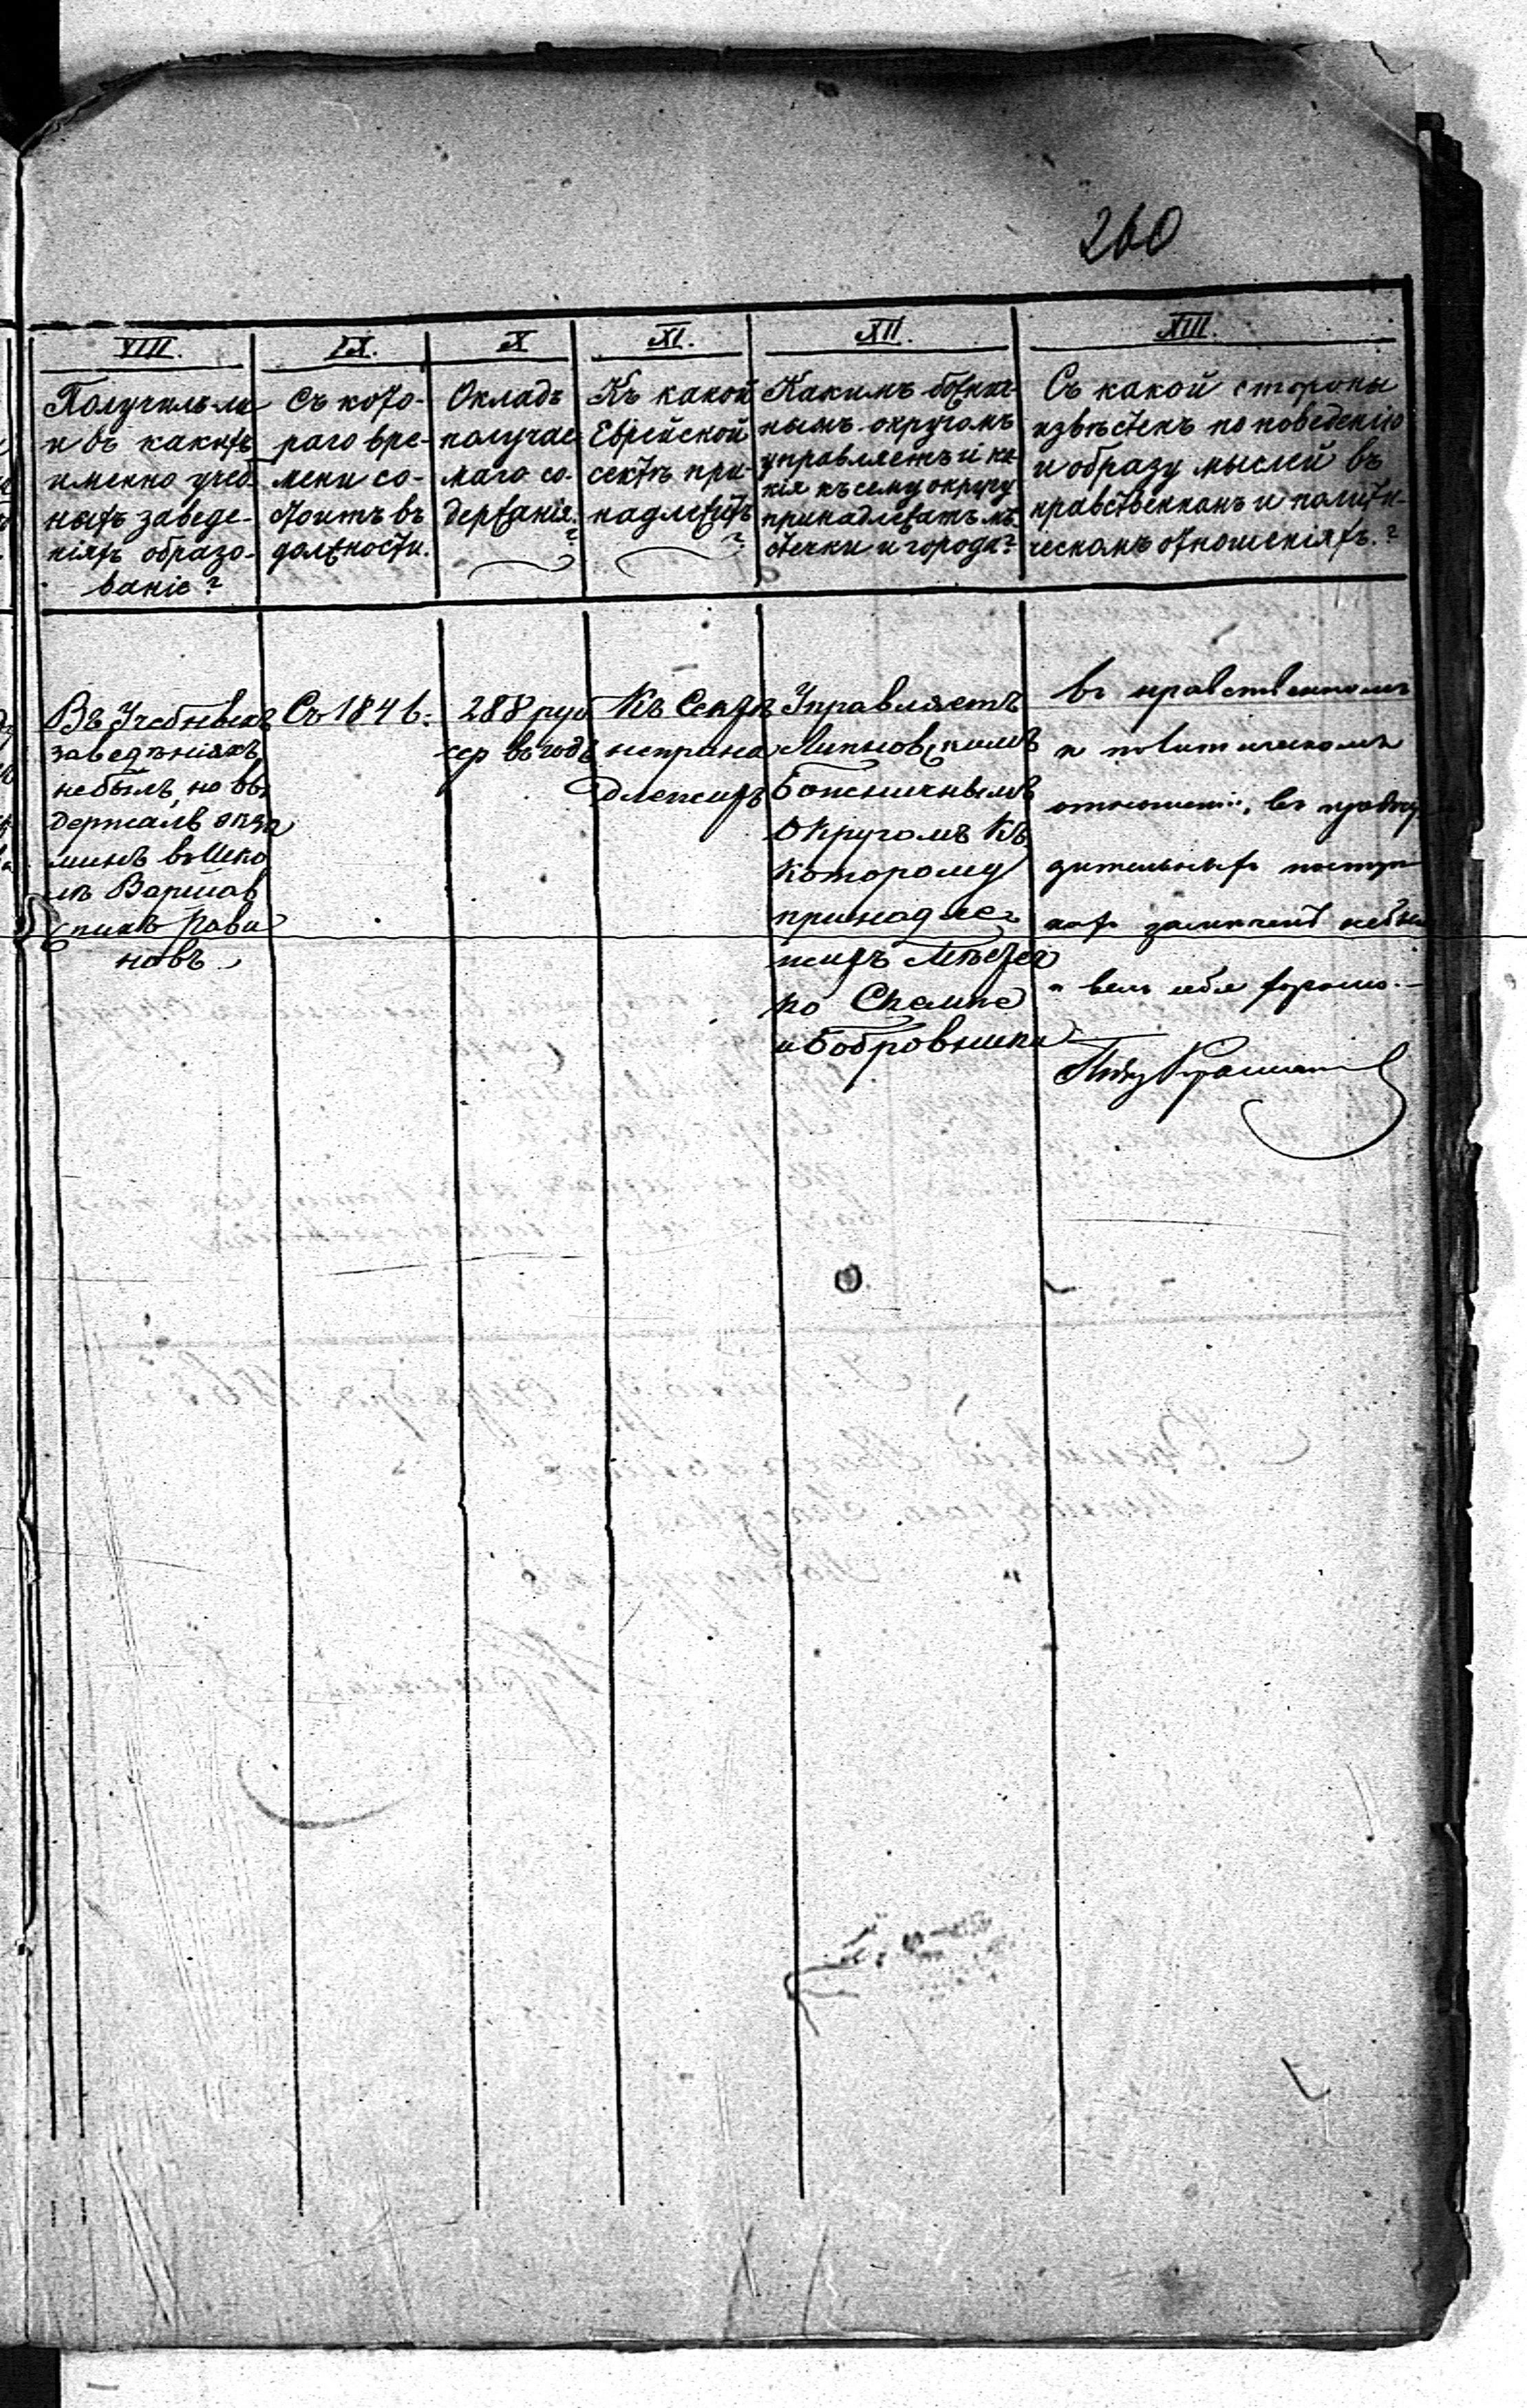 260
VIII.
Получилъ-ли
и въ какихъ
именно учеб-
ныхъ заведе-
ніяхъ образо-
ваніе?
IX.
Съ кото-
раго вре-
мени со-
стоитъ въ
должности.
X
Окладъ
получае
маго со-
держанія.
?
XI.
Къ какой
Еврейской
сектѣ при-
надлежитъ
?
XII.
Какимъ божнич-
нымъ округомъ
управляетъ и ка
кія къ сему округу
принадлежатъ мѣ-
стечки и города?
XIII.
Съ какой стороны
извѣстенъ по поведенію
и образу мыслей въ
нравственномъ и полити-
ческомъ отношеніяхъ.?
Въ Учебныхъ
заведѣніяхъ
небылъ, но вы
держалъ экза
минъ въ Шко
лѣ Варшав
скихъ Рави
новъ.
Съ 1846.
288 руб
сер въ годъ
Къ Сектѣ
неприна
длежитъ
Управляетъ
Липновскимъ
Божничнымъ
Округомъ Къ
которому
принадле-
житъ Мѣстеч
ко Скемпе
и Бобровники
въ нравственномъ
и политическомъ
отношеніи, въ предосу
дительныхъ поступ
кахъ замѣченъ небылъ
и велъ себя хорошо.